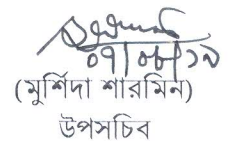 ০৭/০৮/১৯
(মুর্শিদা শারমিন)
উপসচিব